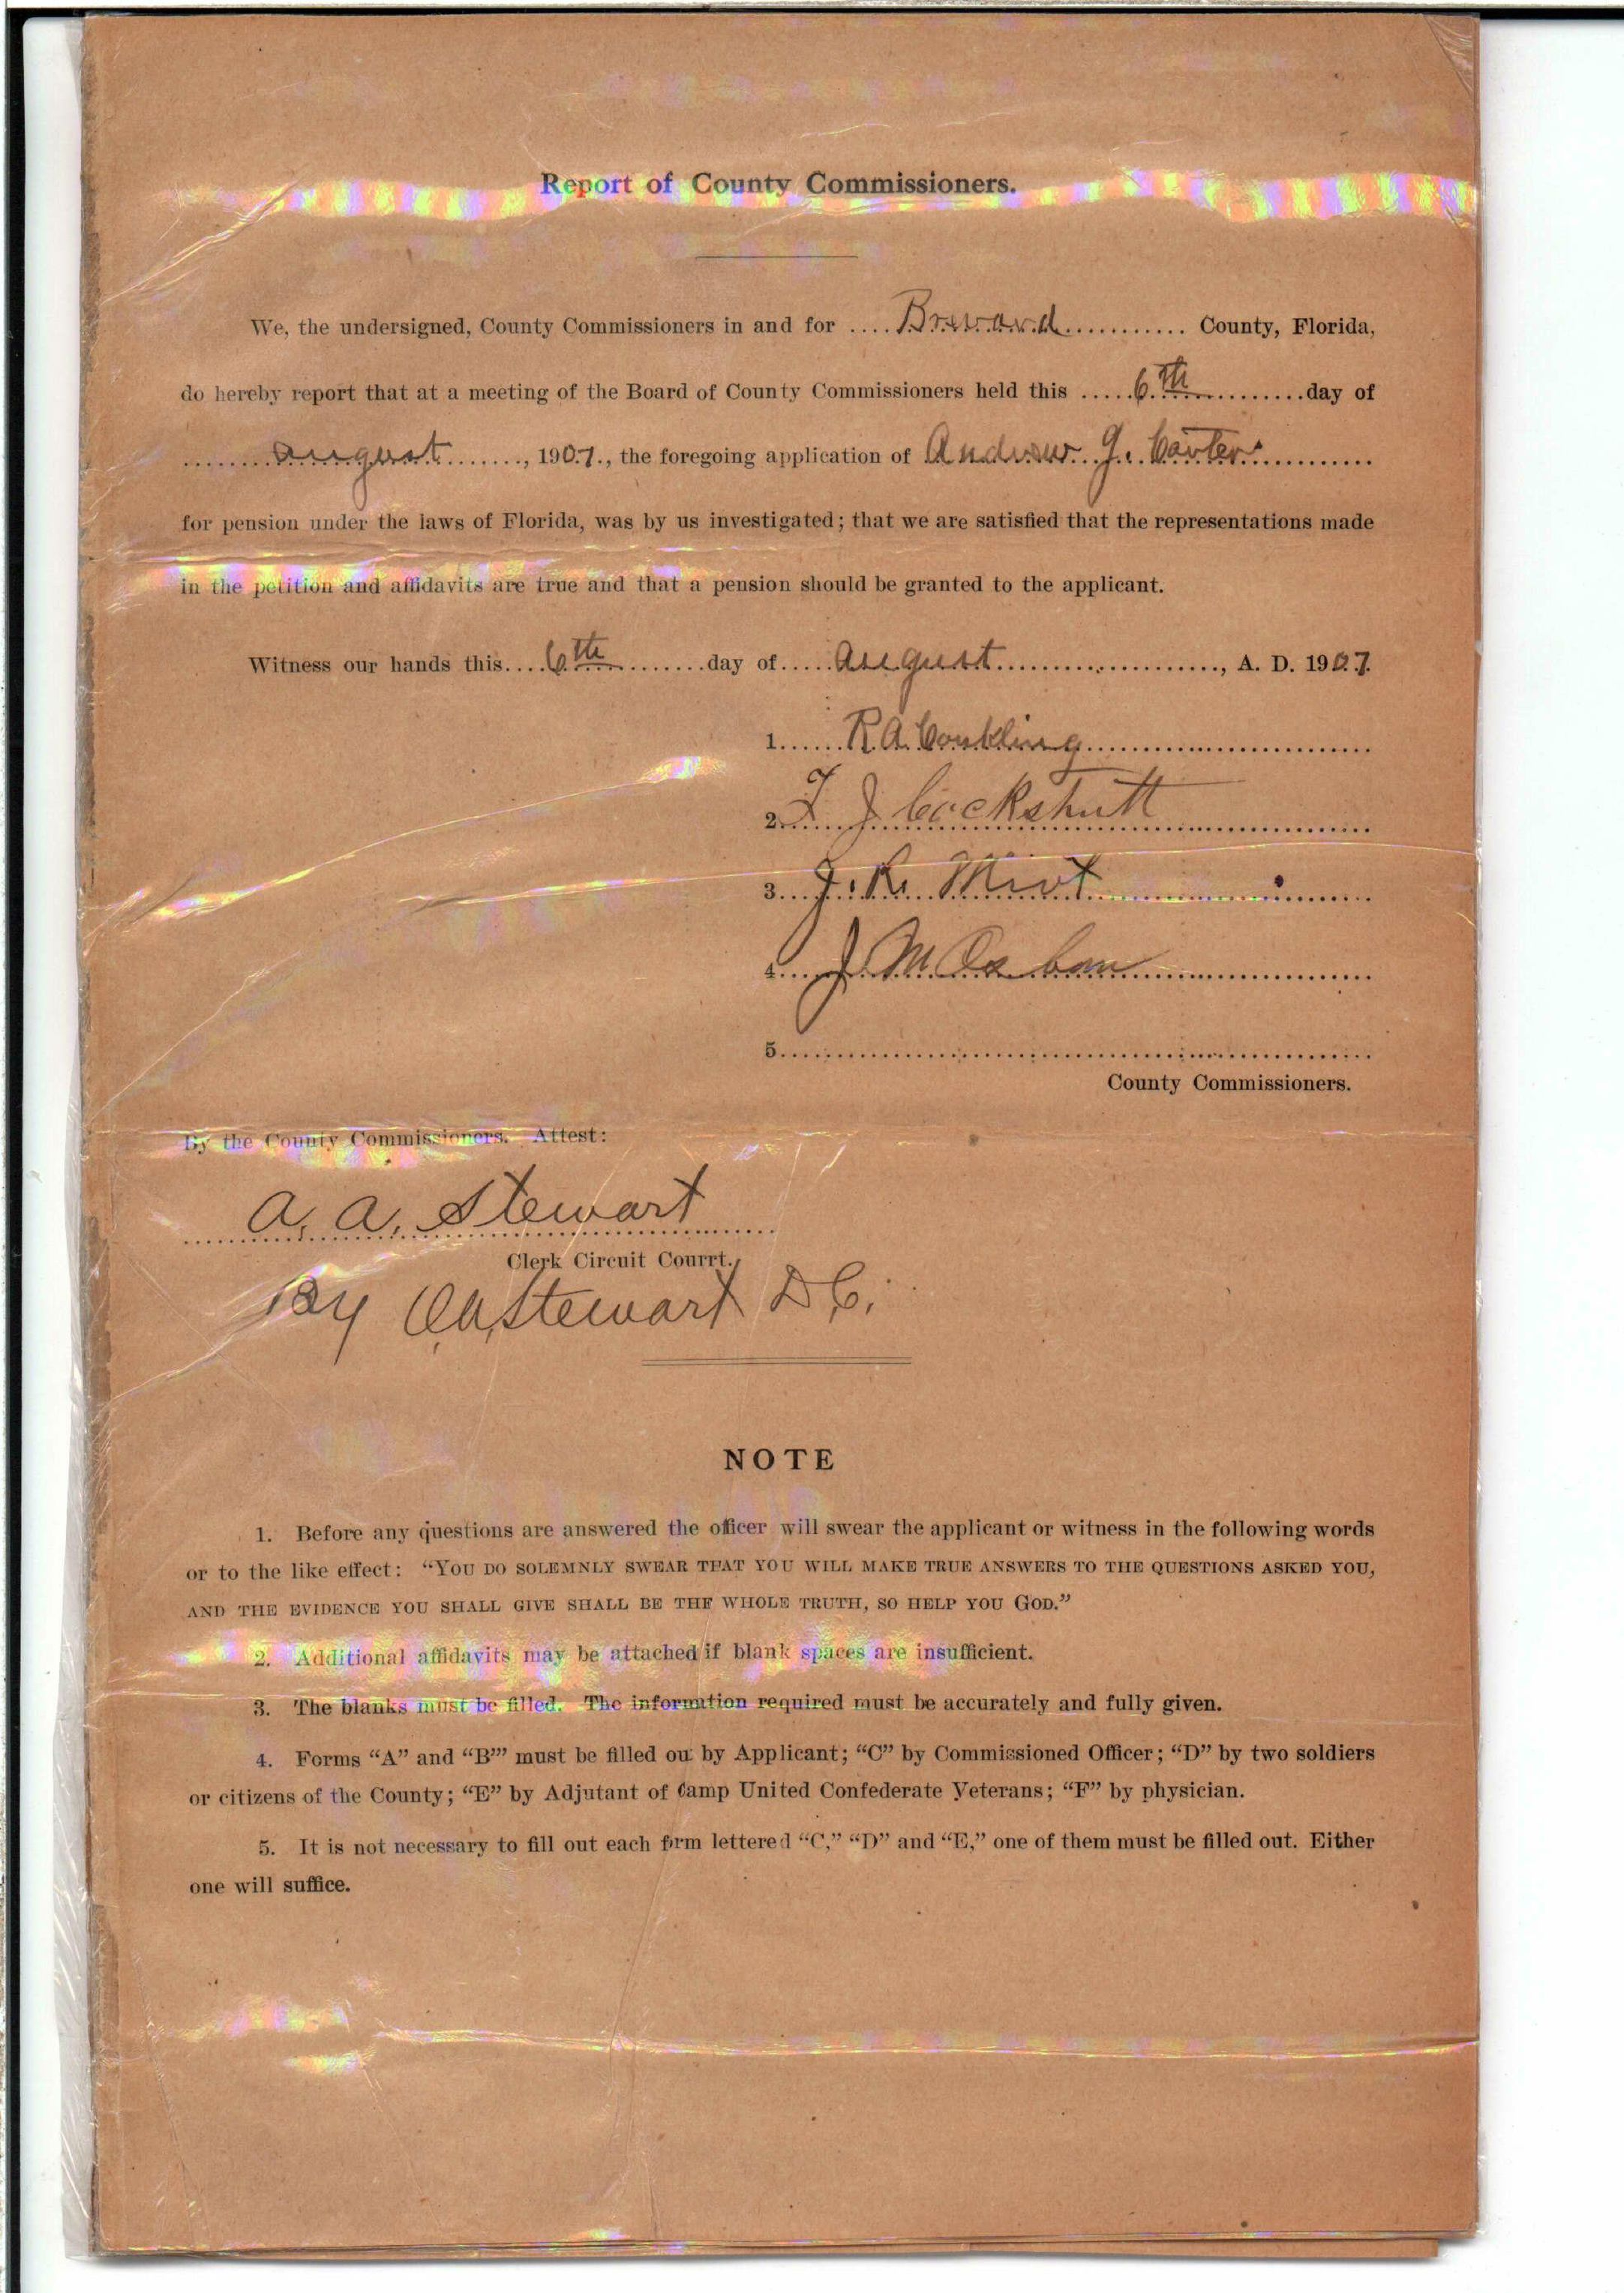 Report of County Commissioners.
We, the undersigned, County Commissioners in and for .... Brevard ........... County, Florida,
do hereby report that at a meeting of the Board of County Commissioners held this ..... 6th ......... day of
....... August ......., 1907., the foregoing application of Andrew J. Carter ...........
for pension under the laws of Florida, was by us investigated; that we are satisfied that the representations made
in the petition and affidavits are true and that a pension should be granted to the applicant.
Witness our hands this.... 6th ........day of..... August ......................, A. D. 1907.
1...... R. A. Conkling ............................
2...... F J Cockshutt ............................
3... J. R. Mivt ............................
4.... J M Osban ............................
5............................
County Commissioners.
By the County Commissioners. Attest:
A. A. Stewart
Clerk Circuit Courrt.
By O. A. Stewart D C.
NOTE
1. Before any questions are answered the officer will swear the applicant or witness in the following words
or to the like effect: “YOU DO SOLEMNLY SWEAR THAT YOU WILL MAKE TRUE ANSWERS TO THE QUESTIONS ASKED YOU,
AND THE EVIDENCE YOU SHALL GIVE SHALL BE THE WHOLE TRUTH, SO HELP YOU GOD.”
2. Additional affidavits may be attached if blank spaces are insufficient.
3. The blanks must be filled. The information required must be accurately and fully given.
4. Forms “A” and “B”’ must be filled ou by Applicant; “C” by Commissioned Officer; “D” by two soldiers
or citizens of the County; “E” by Adjutant of Camp United Confederate Veterans; “F” by physician.
5. It is not necessary to fill out each form lettered “C,” “D” and “E,” one of them must be filled out. Either
one will suffice.